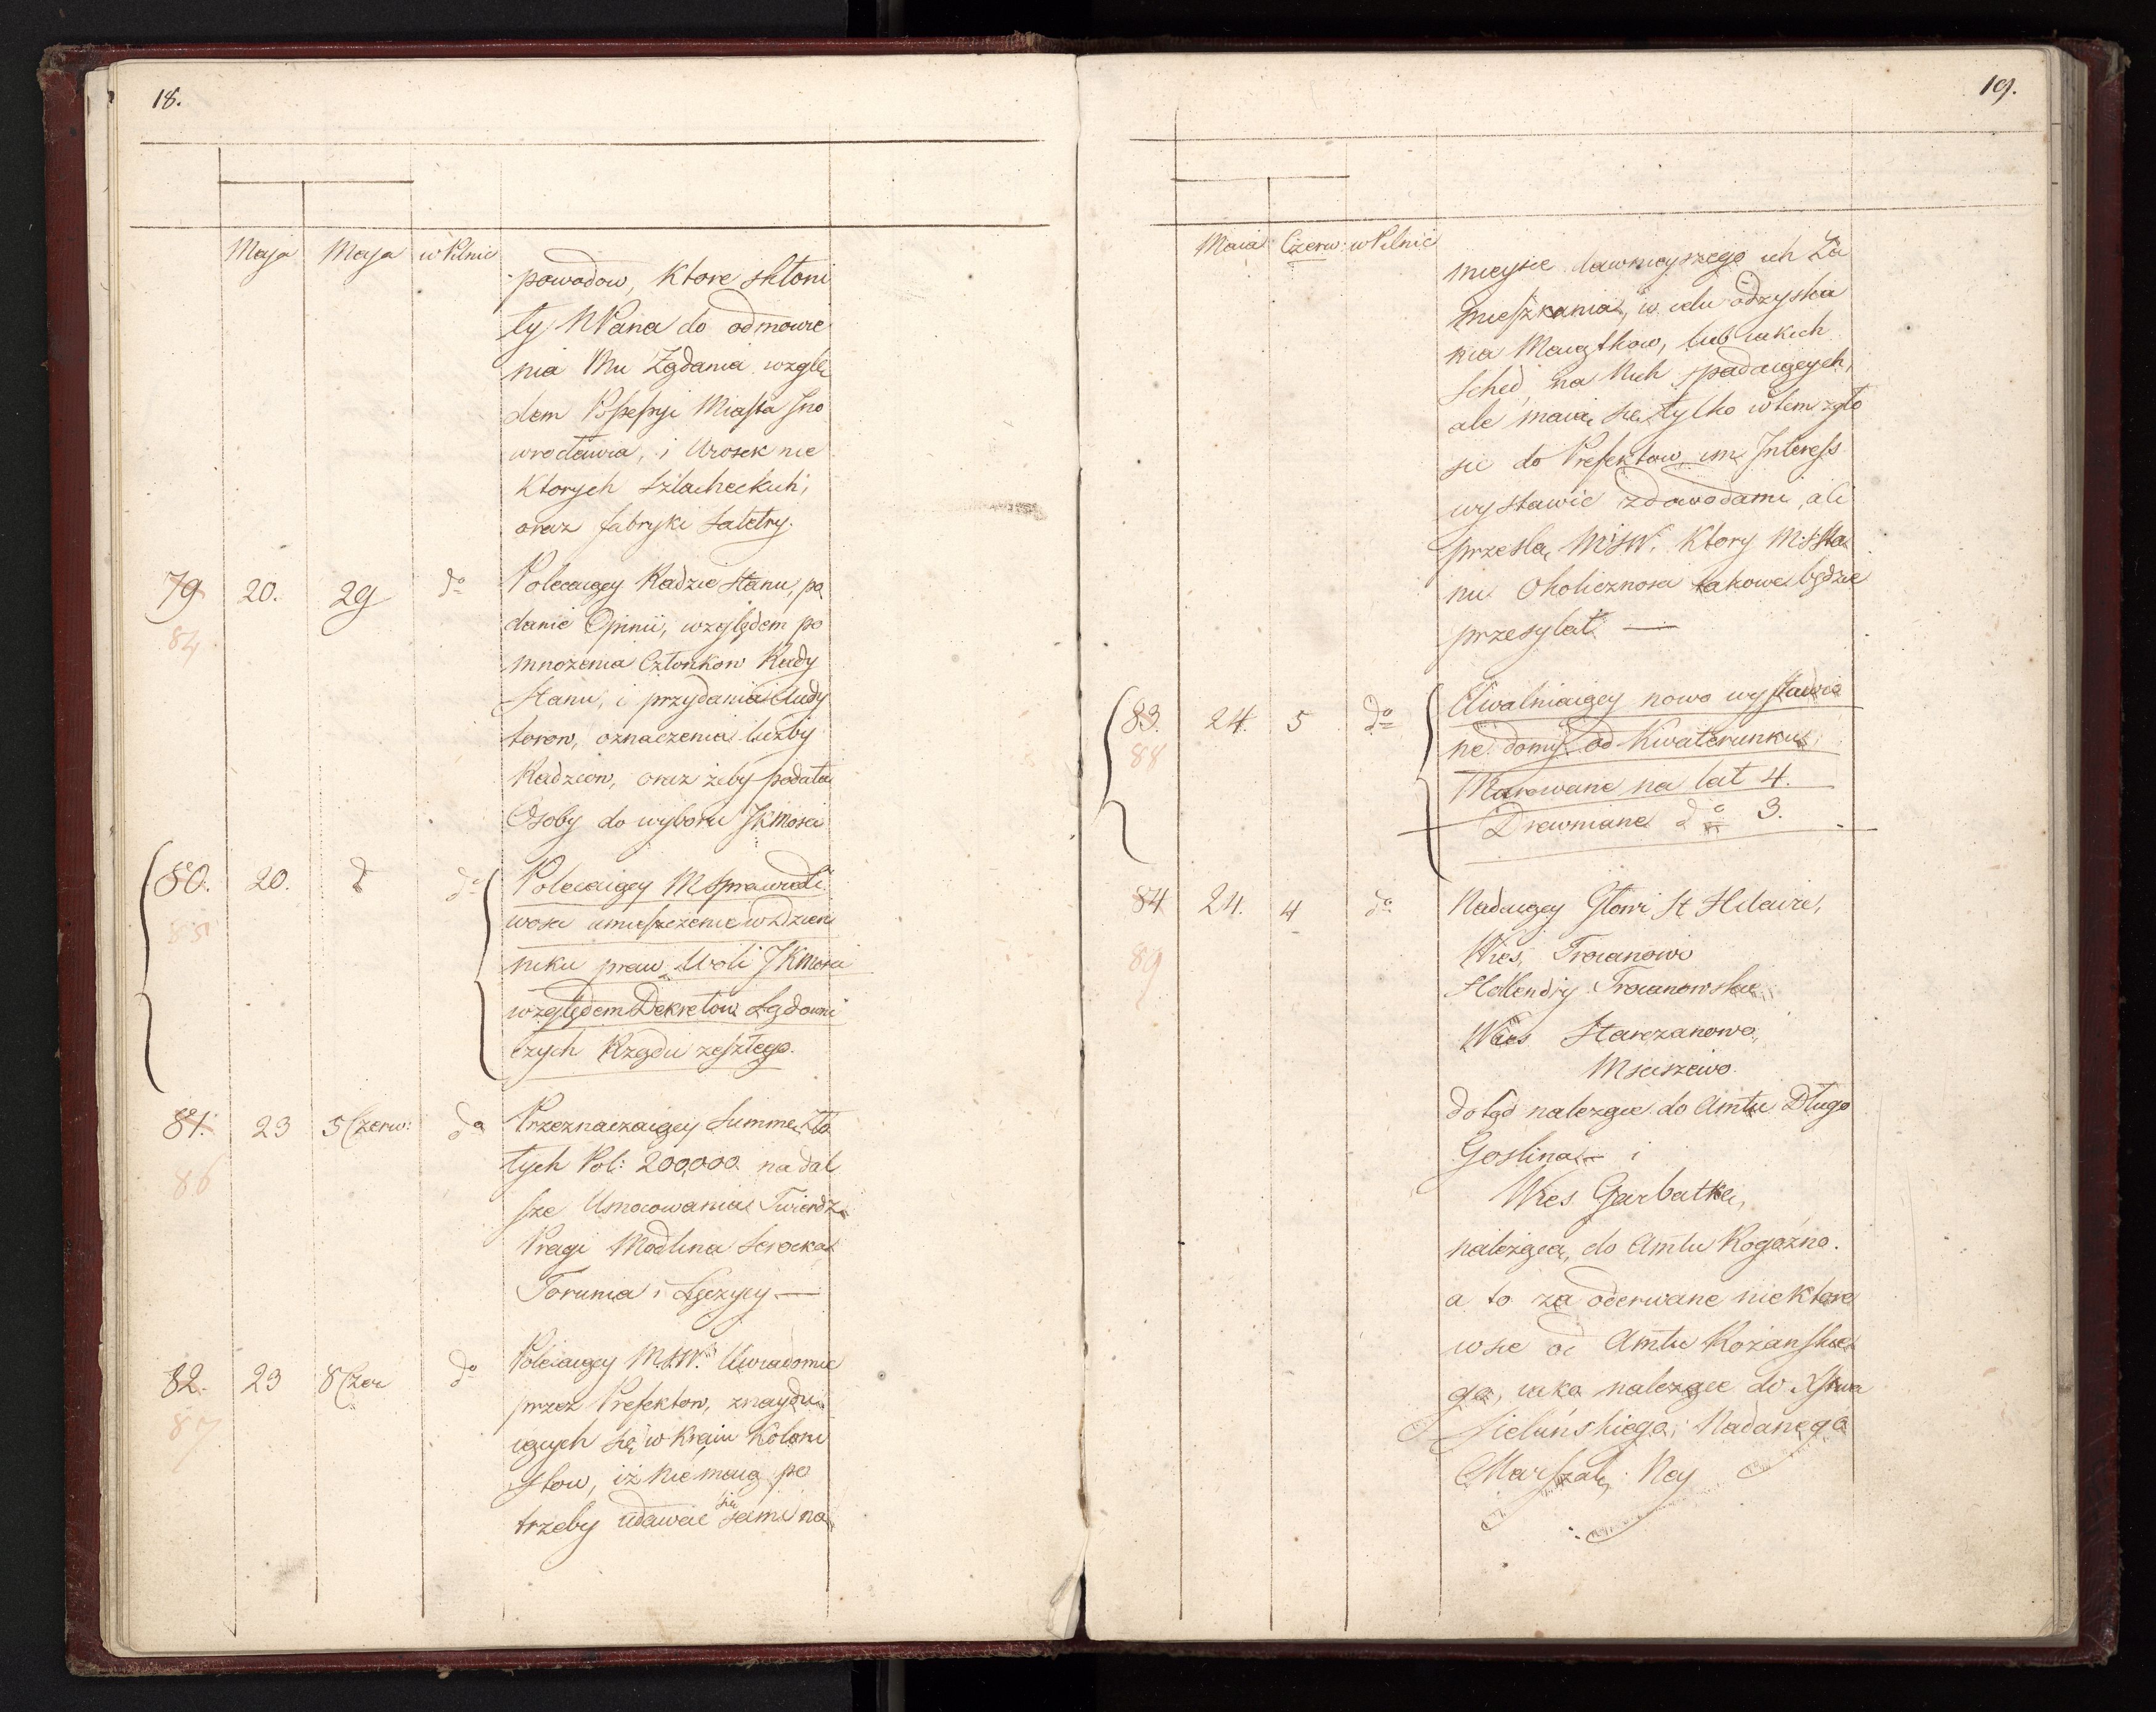 18.
Maja Maja w Pilnic
powodow, ktore skłoni
ły WPana do odmowie
nia Mu Żądania wzglę
dem Possessyi Miasta Ino
wrocławia, i Wiosek nie
ktorych szlacheckich,
oraz fabryki saletry.
79 20. 29 do Polecaiący Radzie Stanu, po
84 danie Opinii, względem po
mnożenia Członkow Rady
Stanu, i przydania Audy
torow, oznaczenia liczby
Radzcow, oraz żeby podała
Osoby do wyboru JKMosci
80. 20. d do Polecaiący MSprawiedli
85 wosci umieszczenie w Dzien
niku praw Woli JKMosci
względem Dekretow Sądowni
czych Rządu zeszłego.
81. 23 5 Czerw: do Przeznaczaiący Summę Zło
86 tych Pol: 200,000 na dal
sze Umocowania Twierdz
Pragi Modlina Serocka
Torunia i Łęczycy —
82. 23 8 Czer do Polecaiący MSW. Uwiadomie
87 przez Prefektow, znaydu
iących się w Kraiu Koloni
stow, iż nie maią po
trzeby udawać się sami na
19.
Maia Czerw: w Pilnic
mieysce dawnieyszego ich Za
mieszkania, w celu odzyska
nia Maiątkow, lub iakich
sched, na Nich spadaiących,
ale maią się tylko w tem zgło
sić do Prefektow im Interess
wystawić z dowodami, ali
przesłą MSW. Ktory M:Sta
nu Okolicznosci takowe będzie
przesyłał —
83. 24. 5 do Uwalniaiący nowo wystawio
88 ne domy od Kwaterunku,
Murowane na lat 4.
Drewniane do 3.
84 24. 4 do Nadaiący Głowi St Hilaire,
89 Wies, Troianowo
Hollendry Troianowskie
Wies Starczanowo,
Msciszewo.
dotąd należące do Amtu Długo
Goslina — i
Wies Garbatka,
należąca, do Amtu Rogozno.
a to za oderwane niektore
wsie od Amtu Rożanskie
go, iako należące do Xstwa
Sieluńskiego, Nadanego
Marszał: Ney